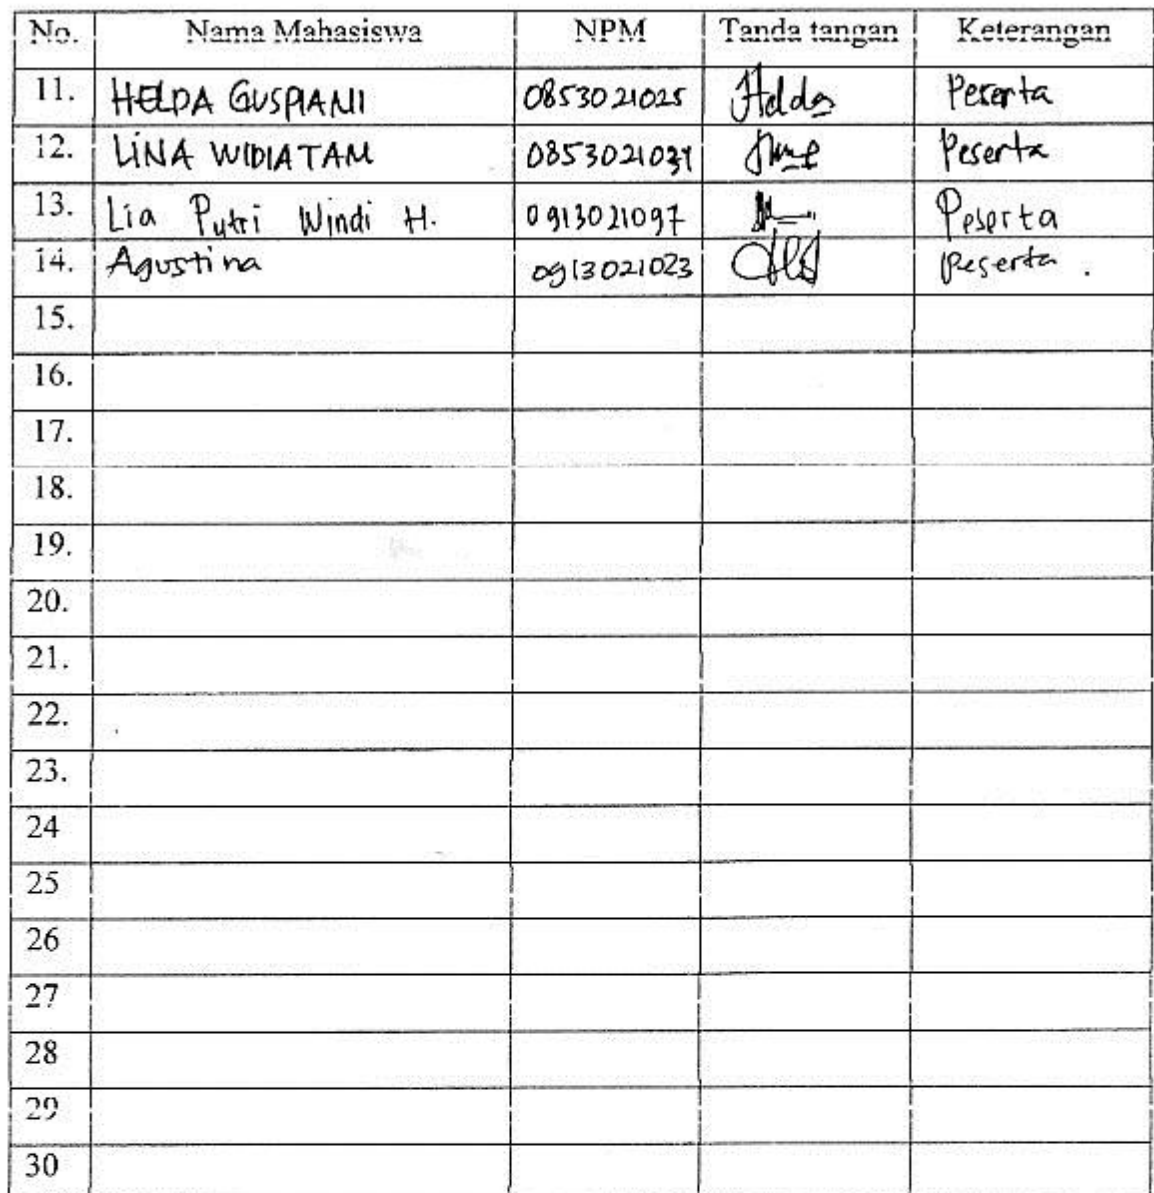 No. Nama Mahasiswa NPM Tanda tangan Keterangan
11. HELDA GUSPIANI 0853021025 Helda Peserta
12. LINA WIDIATAM 0853021034 Peserta
13. Lia Putri Windi H. 0913021097 Peserta
14. Agustina 0913021023 Peserta.
15.
16.
17.
18.
19.
20.
21.
22.
23.
24
25
26
27
28
29
30